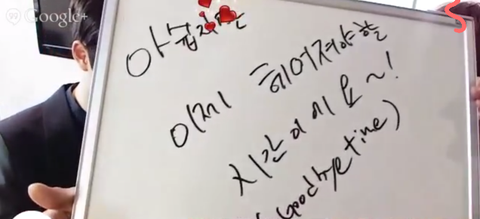 Google+
아쉽지만
이제 헤어져야할
시간이에요~!
(Goodbye time)